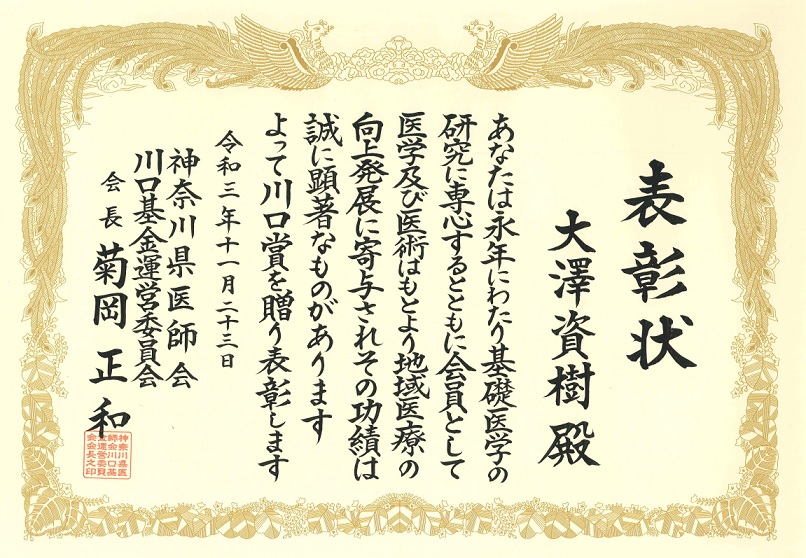 表彰状
大澤資樹殿
あなたは永年にわたり基礎医学の
研究に専心するとともに会員として
医学及び医術はもとより地域医療の
向上発展に寄与されその功績は
誠に顕著なものがあります
よって川口賞を贈り表彰します
令和三年十一月二十三日
神奈川県医師会
川口基金運営委員会
会長 菊岡正和
神奈川県医
師会川口基
金運営委員
会会長之印